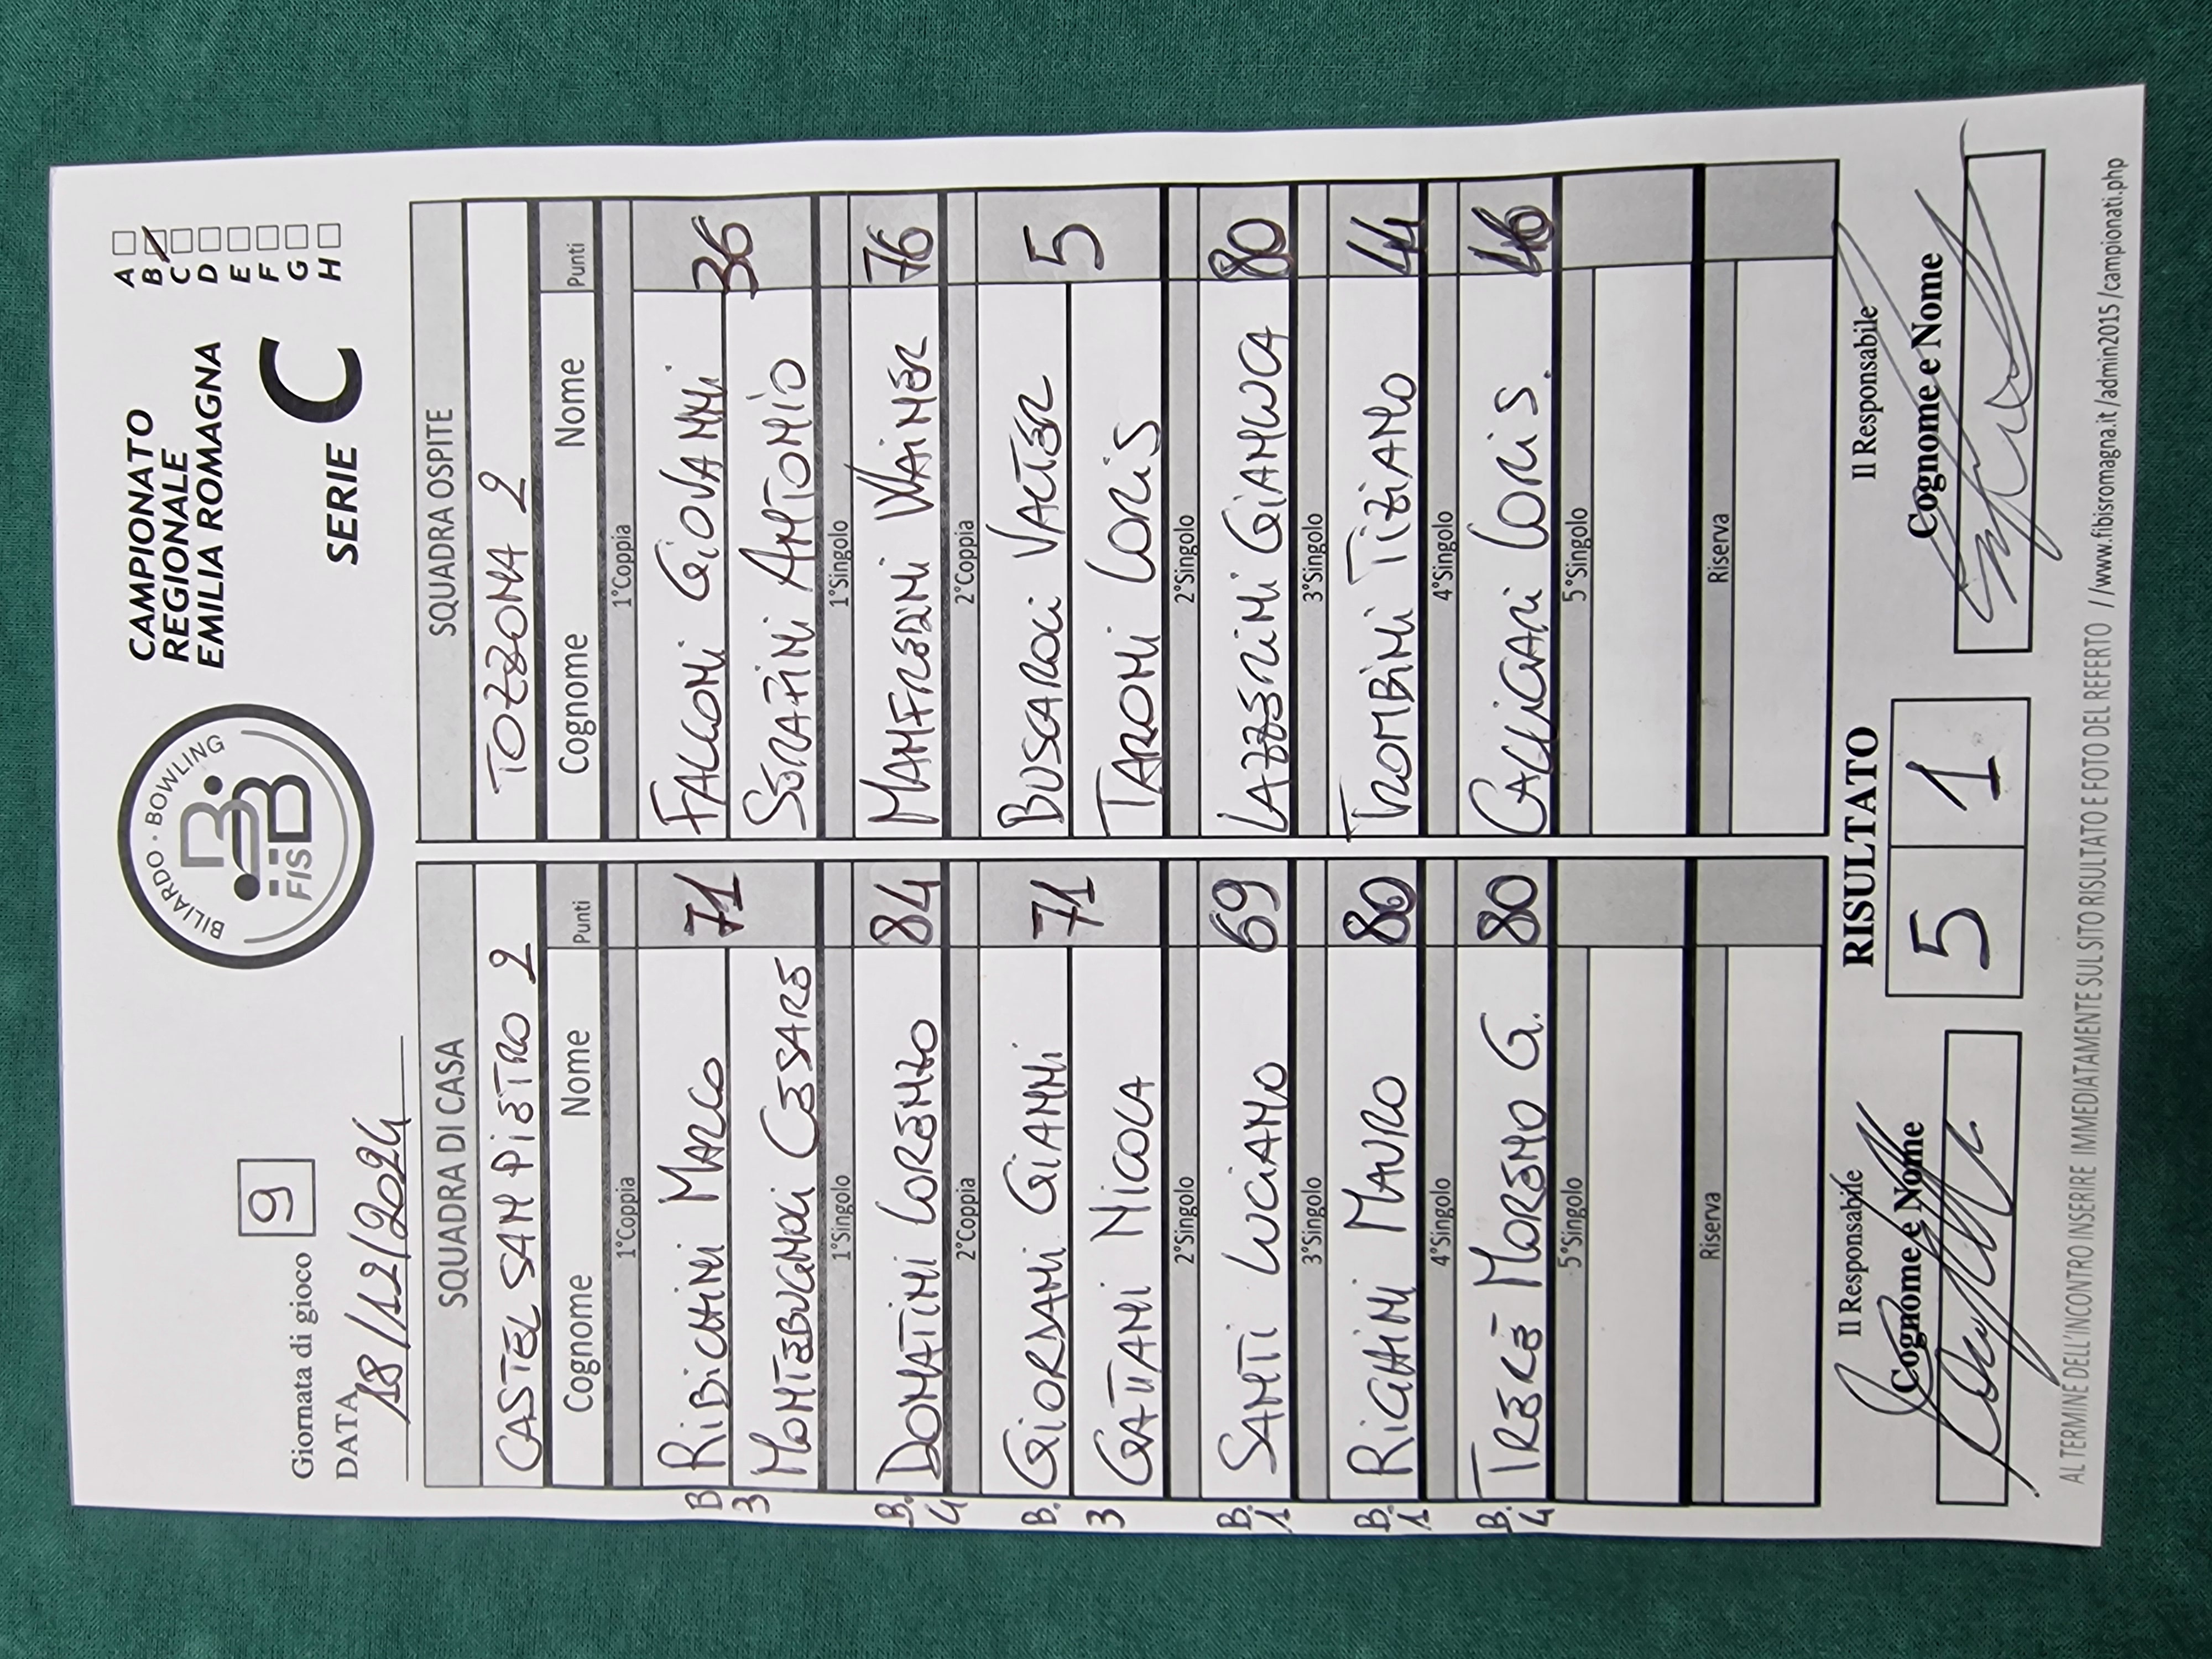 Giornata di gioco 9
DATA 18/12/2024
BILIARDO · BOWLING
FISBB
CAMPIONATO
REGIONALE
EMILIA ROMAGNA
SERIE C
A
B
C
D
E
F
G
H
SQUADRA DI CASA
CASTEL SAN PIETRO 2
Cognome Nome Punti
1°Coppia
B RIBICHINI MARCO 71
3 MONTEBUGNOLI CESARE
1°Singolo
B. 4 DONATINI LORENZO 84
2°Coppia
B. GIORDANI GIANNI 71
3 GATTANI NICOLA
2°Singolo
B. 1 SANTI LUCIANO 69
3°Singolo
B. 1 RIGHINI MAURO 80
4°Singolo
B. 4 TRERÈ MORENO G. 80
5°Singolo
Riserva
SQUADRA OSPITE
TOZZONA 2
Cognome Nome Punti
1°Coppia
FALCONI GIOVANNI 36
SERAFINI ANTONIO
1°Singolo
MANFREDINI WAINER 76
2°Coppia
BUSCAROLI VALTER 5
TARONI LORIS
2°Singolo
LAZZERINI GIANLUCA 80
3°Singolo
TROMBINI TIZIANO 44
4°Singolo
CALLIGARI LORIS. 46
5°Singolo
Riserva
Il Responsabile
Cognome e Nome
RISULTATO
5 1
Il Responsabile
Cognome e Nome
AL TERMINE DELL'INCONTRO INSERIRE IMMEDIATAMENTE SUL SITO RISULTATO E FOTO DEL REFERTO //www.fibisromagna.it/admin2015/campionati.php